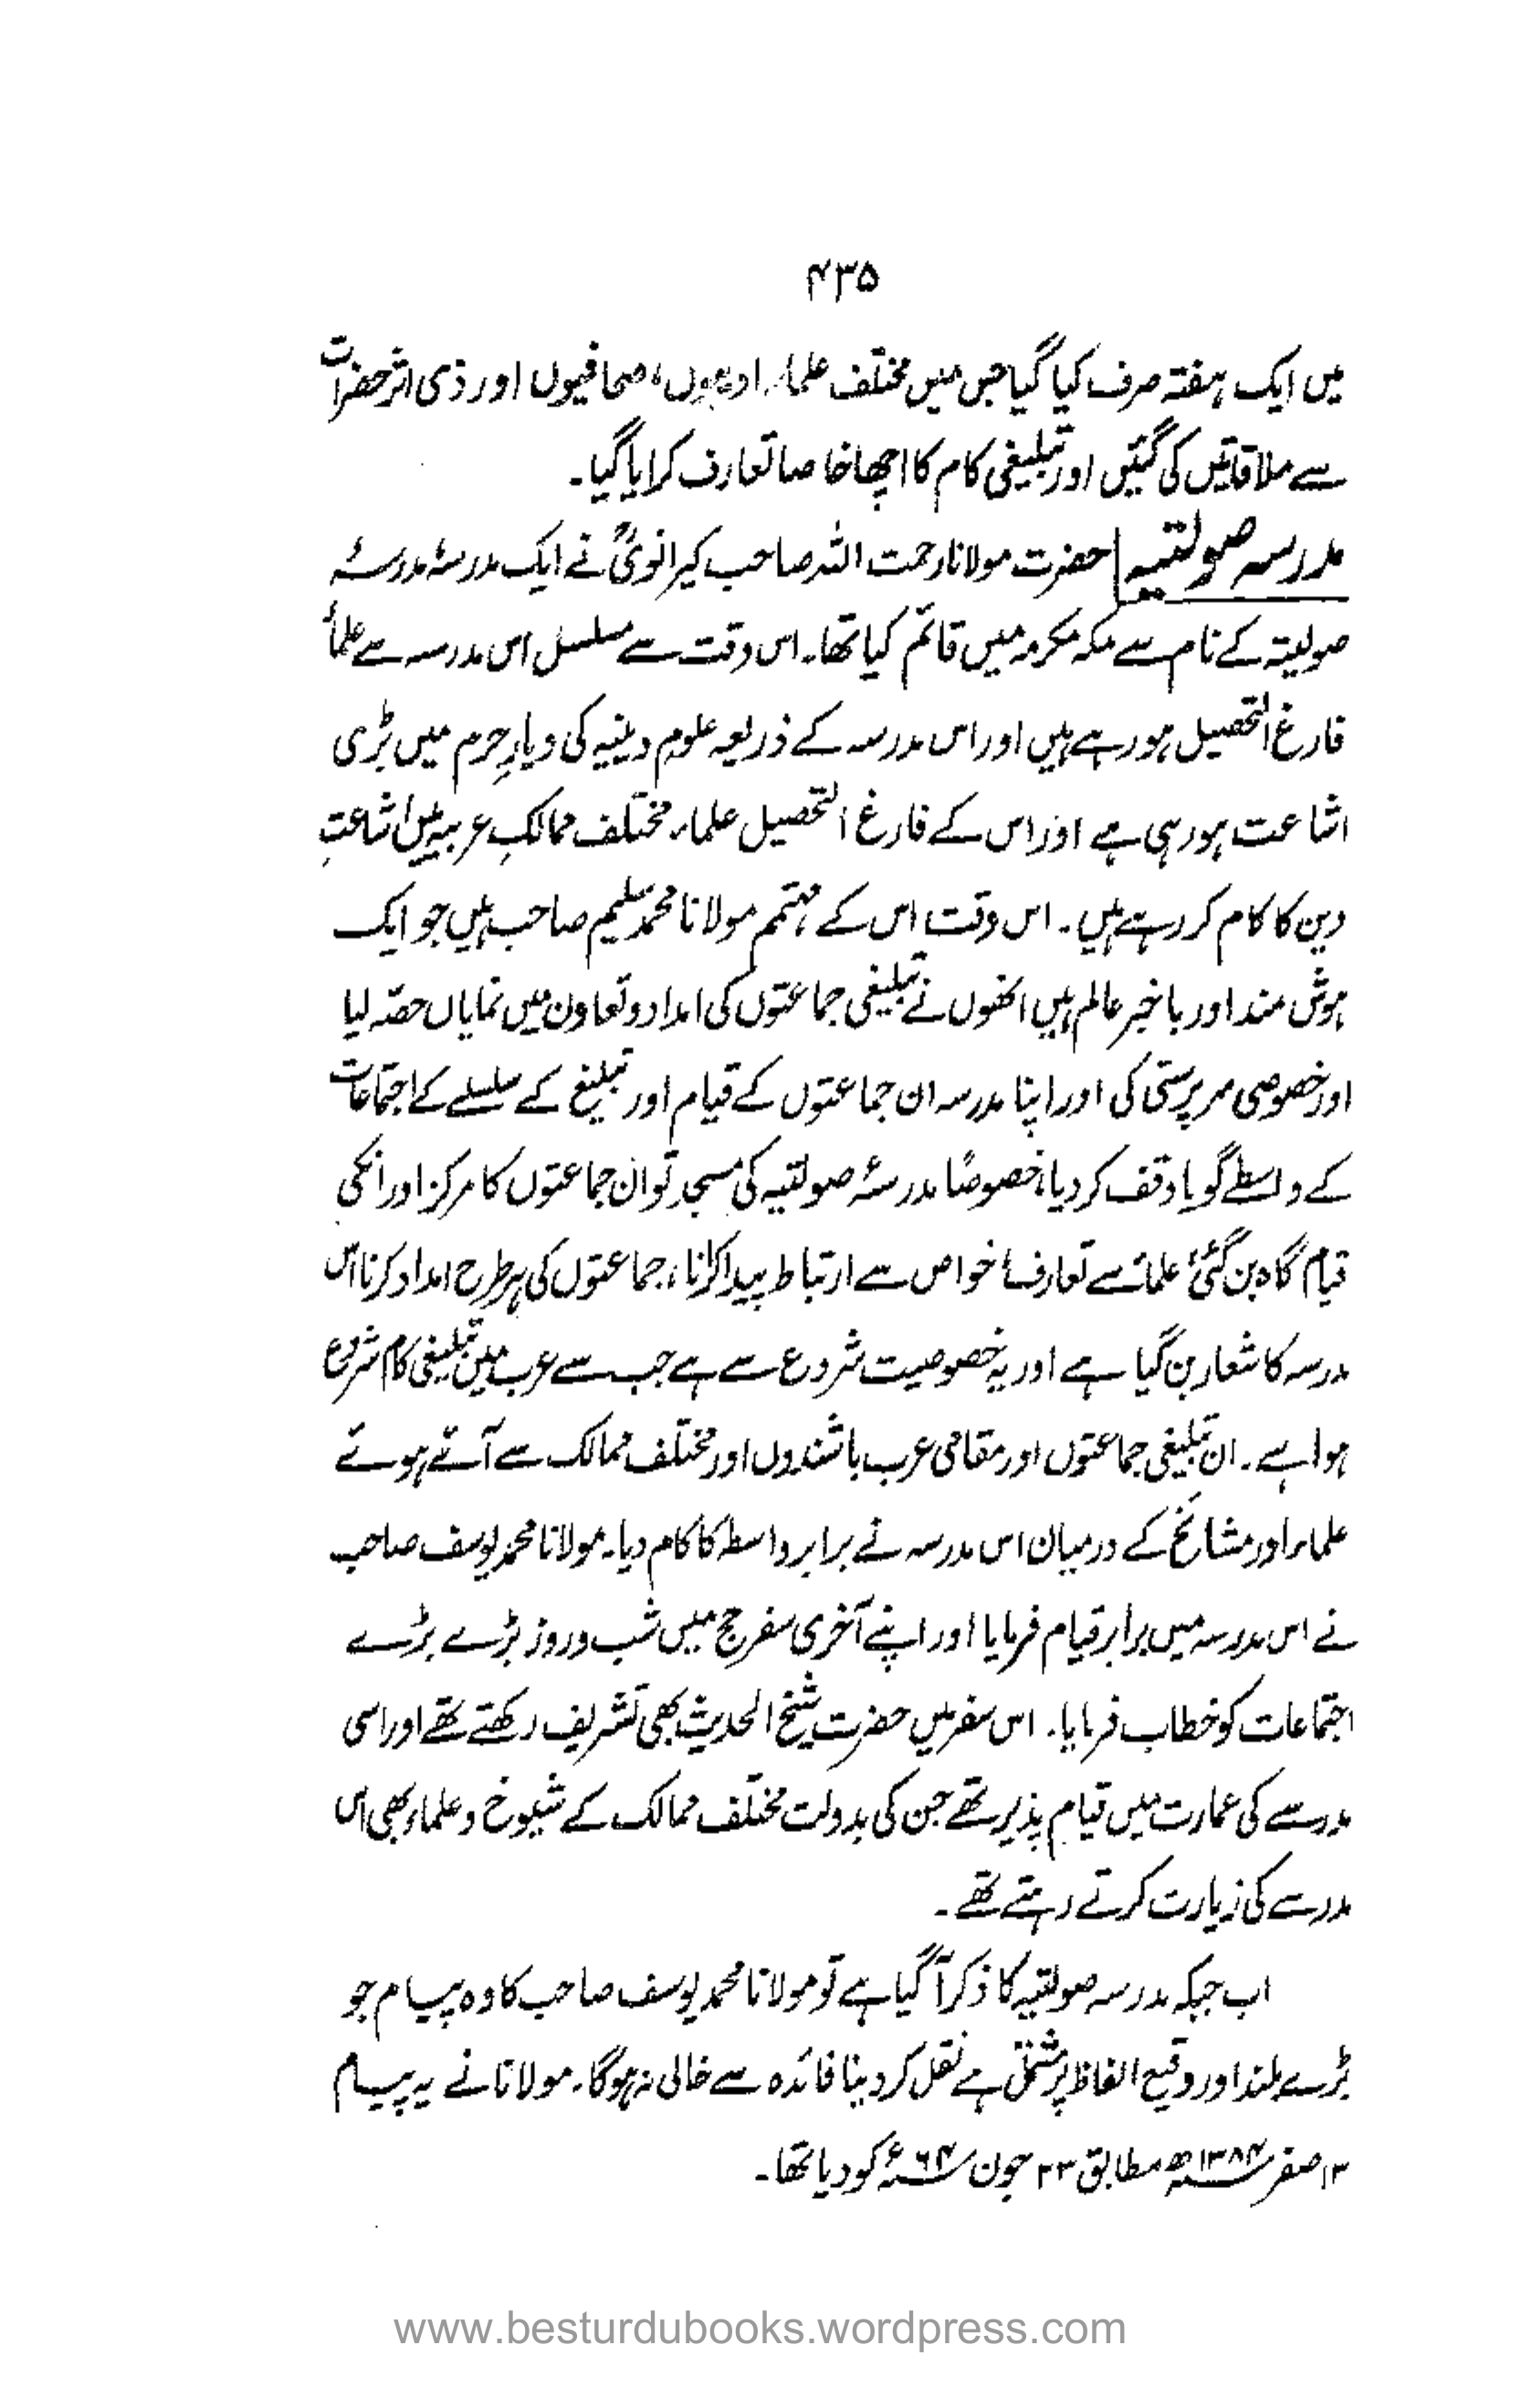 ۴۳۵
میں ایک ہفتہ صرف کیا گیا جس میں مختلف علماء، ادیبوں، صحافیوں اور ذی اثر حضرات
سے ملاقاتیں کی گئیں اور تبلیغی کام کا اچھا خاصا تعارف کرایا گیا۔
مدرسہ صولتیہ | حضرت مولانا رحمت اللہ صاحب کیرانویؒ نے ایک مدرسۂ مدرسۂ
صولیتہ کے نام سے مکہ مکرمہ میں قائم کیا تھا۔ اس وقت سے مسلسل اس مدرسہ سے علمأ
فارغ التحصیل ہو رہے ہیں اور اس مدرسہ کے ذریعہ علوم دینیہ کی دیارِ حرم میں بڑی
اشاعت ہو رہی ہے اور اس کے فارغ التحصیل علماء مختلف ممالکِ عربیہ میں اشاعتِ
دین کا کام کر رہے ہیں۔ اس وقت اس کے مہتمم مولانا محمد سلیم صاحب ہیں جو ایک
ہوش مند اور باخبر عالم ہیں انھوں نے تبلیغی جماعتوں کی امداد و تعاون میں نمایاں حصّہ لیا
اور خصوصی سرپرستی کی اور اپنا مدرسہ ان جماعتوں کے قیام اور تبلیغ کے سلسلے کے اجتماعات
کے واسطے گویا وقف کر دیا، خصوصًا مدرسۂ صولتیہ کی مسجد تو ان جماعتوں کا مرکز اور انکی
قیام گاہ بن گئی، علماء سے تعارف، خواص سے ارتباط پیدا کرانا، جماعتوں کی ہر طرح امداد کرنا اس
مدرسہ کا شعار بن گیا ہے اور یہ خصوصیت شروع سے ہے جب سے عرب میں تبلیغی کام شروع
ہوا ہے۔ ان تبلیغی جماعتوں اور مقامی عرب باشندوں اور مختلف ممالک سے آتے ہوتے
علماء اور مشائخ کے درمیان اس مدرسہ نے برابر واسطہ کا کام دیا۔ مولانا محمد یوسف صاحب
نے اس مدرسہ میں برابر قیام فرمایا اور اپنے آخری سفر حج میں شب و روز بڑے بڑے
اجتماعات کو خطاب فرمایا۔ اس سفر میں حضرت شیخ الحدیث بھی تشریف رکھتے تھے اور اسی
مدرسے کی عمارت میں قیام پذیر تھے جن کی بدولت مختلف ممالک کے شیوخ و علماء بھی اس
مدرسے کی زیارت کرتے رہتے تھے۔
اب جبکہ مدرسہ صولتیہ کا ذکر آ گیا ہے تو مولانا محمد یوسف صاحب کا وہ پیام جو
بڑے بلند اور وقیع الفاظ پر مشتمل ہے نقل کر دینا فائدہ سے خالی نہ ہوگا۔ مولانا نے یہ پیام
۱۳ صفر ۱۳۸۴ھ مطابق ۲۳ جون ۶۴ء کو دیا تھا۔
www.besturdubooks.wordpress.com